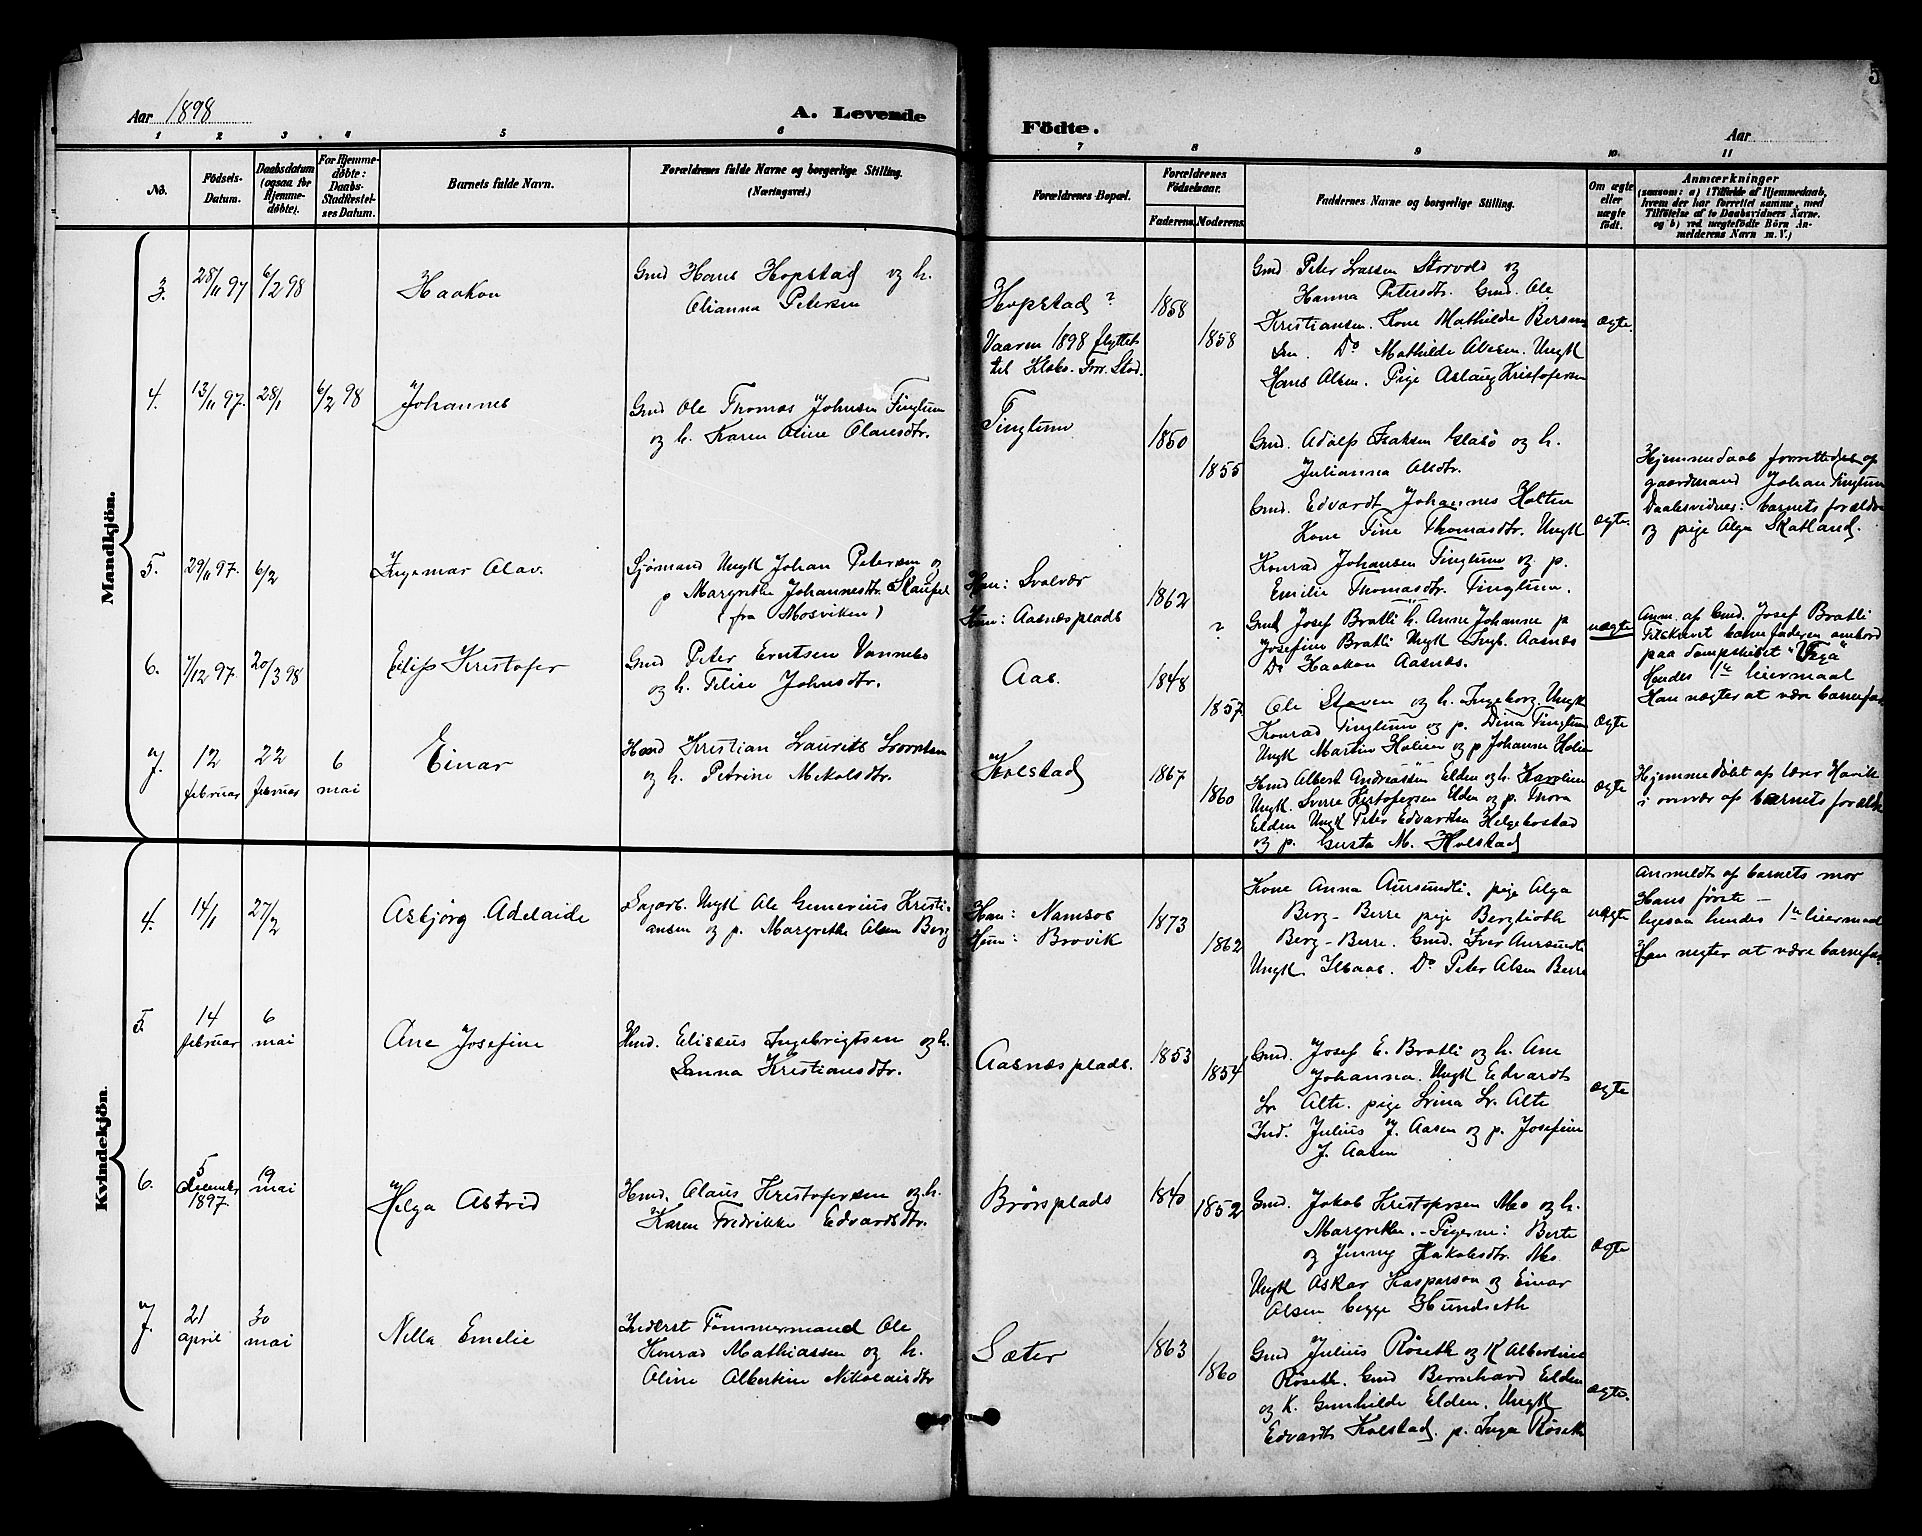 5
Aar 1898
A. Levende
Födte.
Aar
1 2 3 4 5 6 7 8 9 10. 11
No.
Födsels-
Datum.
Daabsdatum
(ogsaa for
Hjemme-
døbte).
For Hjemme-
døbte:
Daabs-
Stadfæstel-
ses Datum.
Barnets fulde Navn.
Forældrenes fulde Navne og borgerlige Stilling.
(Næringsvei.)
Forældrenes Bopæl.
Forældrenes
Födselsaar.
Faderens.
Moderens.
Faddernes Navne og borgerlige Stilling.
Om ægte
eller
uægte
født.
Anmærkninger
(saasom: a) i Tilfælde af Hjemmedaab,
hvem der har forrettet samme, med
Tilføielse af to Daabsvidners Navne.
og b) ved uægtefödte Börn An-
melderens Navn m. V.)
Mandkjön.
3.
28/11 97
6/2 98
Haakon
Gmd Hans Hopstad og h.
Olianna Petersen
Hopstad ?
Vaaren 1898 flyttet
til Klebs. Forr. Stod.
1858
1858
Gmd Peter Larsen Storvold og
Hanna Petersdtr. Gmd. Ole
Kristiansen. Kone Mathilde Bersvend
sen. Do Mathilde Olesen. Ungk
Hans Olsen. Pige Aslaug Kristofersen
ægte.
4.
13/11 97.
28/1
6/2 98
Johannes
Gmd Ole Thomas Johnsen Tinglum
og h. Karen Oline Olausdtr.
Tinglum
1850
1855
Gmd. Adolf Isaksen Elabø og h.
Julianna Olsdtr.
Gmd. Edvardt Johannes Holten
Kone Tine Thomasdtr. Ungk
Konrad Johansen Tinglum og p.
Emilie Thomasdtr. Tinglum.
ægte.
Hjemmedaab forrettedes af
gaardmand Johan Tinglum
Daabsvidner: barnets forældre
og pige Olga Skatland.
5.
29/11 97.
6/2
Ingemar Olav.
Sjømand Ungk Johan Petersen og
p Margrethe Johannesdtr. Skaufel
(fra Mosviken)
Han: Svolvær
Hun: Aasnæsplads
1862
?
Gmd Josef Bratli h. Anne Johanne p
Josefine Bratli Ungk Ingb. Aasnæs
Do Haakon Aasnæs.
uægte
Anm. af Gmd. Josef Bratli
Tilskrevet barnefaderen ombord
paa dampskibet "Vega"
Hendes 1te leiermaal
Han nægter at være barnefar
6.
7/12 97.
20/3 98
Eilif Kristofer
Gmd Peter Erntsen Vannebo
og h. Felise Johnsdtr.
Aas.
1848
1857
Ole Staven og h. Ingeborg. Ungk
Konrad Tinglum og p. Dina Tinglum
Ungk Martin Holien og p Johanna Holien
ægte
7.
12
februar
22
februar
6
mai
Einar
Hmd Kristian Laurits Lorntsen
og h. Petrine Nikolsdtr.
Kolstad
1867
1860
Hmd Albert Andreassen Elden og h. Karoline
Ungk. Sverre Kristofersen Elden og p. Thora
Elden Ungk Peter Edvardsen Helgebostad
og p. Gusta M. Holstad
ægte
Hjemmedøbt af lærer Havik
i nærvær af barnets forældre
Kvindekjön.
4.
14/1
27/2
Asbjørg Adelaide
Sagarb. Ungk Ole Generius Kristi-
ansen og p. Margrethe Olsen Berg
Han: Namsos
Hun: Brovik
1873
1862
Kone Anna Aursundli, pige Olga
Berg-Berre pige Bergliotb
Berg-Berre. Gmd. Iver Aursundli
Ungk. Do Peter Olsen Berre
uægte
Anmeldt af barnets mor
Hans første -
ligesaa hendes 1te leiermaal
Han negter at være barnefar
5.
14
februar
6
mai
Ane Josefine
Hmd. Elisæus Ingebrigtsen og h.
Anna Kristiansdtr.
Aasnæsplads.
1853
1854
Gmd. Josef E. Bratli og h. Ane
Johanna. Ungk Edvardt
Sr. Alte. pige Lrina Sr. Alte
Ind. Julius J. Aasen og p. Josefine
J. Aasen
ægte
6.
5
december
1897
19
mai
Helga Astrid
Hmd. Olaus Kristofersen og h.
Karen Fredrikke Edvardsdtr.
Brørsplads
1840
1852
Gmd. Jakob Kristofersen Mo og h.
Margrethe. - Pigerne: Berte
og Jenny Jakobsdtr. Mo
Ungk Oskar Kasparson og Einar
Olsen begge Hundseth
ægte
7.
21
april
30
mai
Nella Emelie
Inderst Tømmermand Ole
Konrad Mathiassen og h.
Oline Albertine Nikolaisdtr
Sæter
1863
1860
Gmd Julius Røseth og K Albertine
Røseth. Gmd Bernhard Elden
og K. Gunhilde Elden, Ungk
Edvardt Kolstad, p. Inga Røseth
ægte.